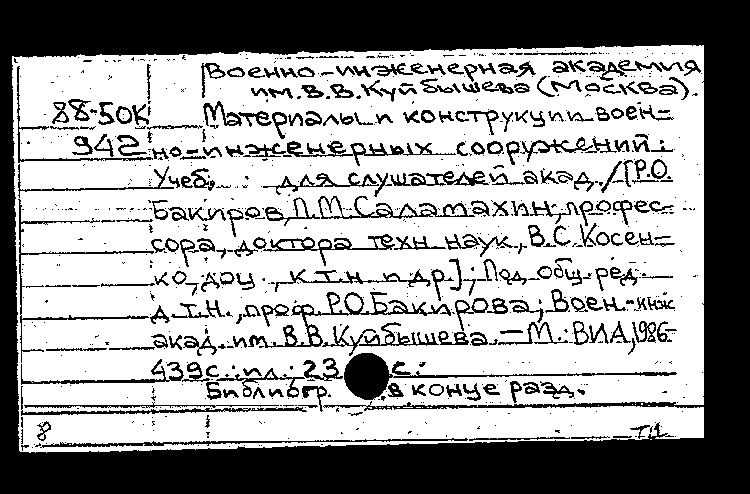 Военно-инженерная академия
им. В.В. Куйбышева (Москва).
88-50К Материалы и конструкции воен=
942 но-инженерных сооружений:
Учеб. для слушателей акад. / [Р.О.
Бакиров, П.М. Саламахин, профес-
сора, доктора техн наук, В.С. Косен=
ко, доц., к т.н и др.]; Под общ. ред.
д.т.н., проф. Р.О. Бакирова; Воен.-инж
акад. им. В.В. Куйбышева. — М.: ВИА, 1986-
439 с.: ил.; 23 с.:
Библиогр. в конце разд.
8